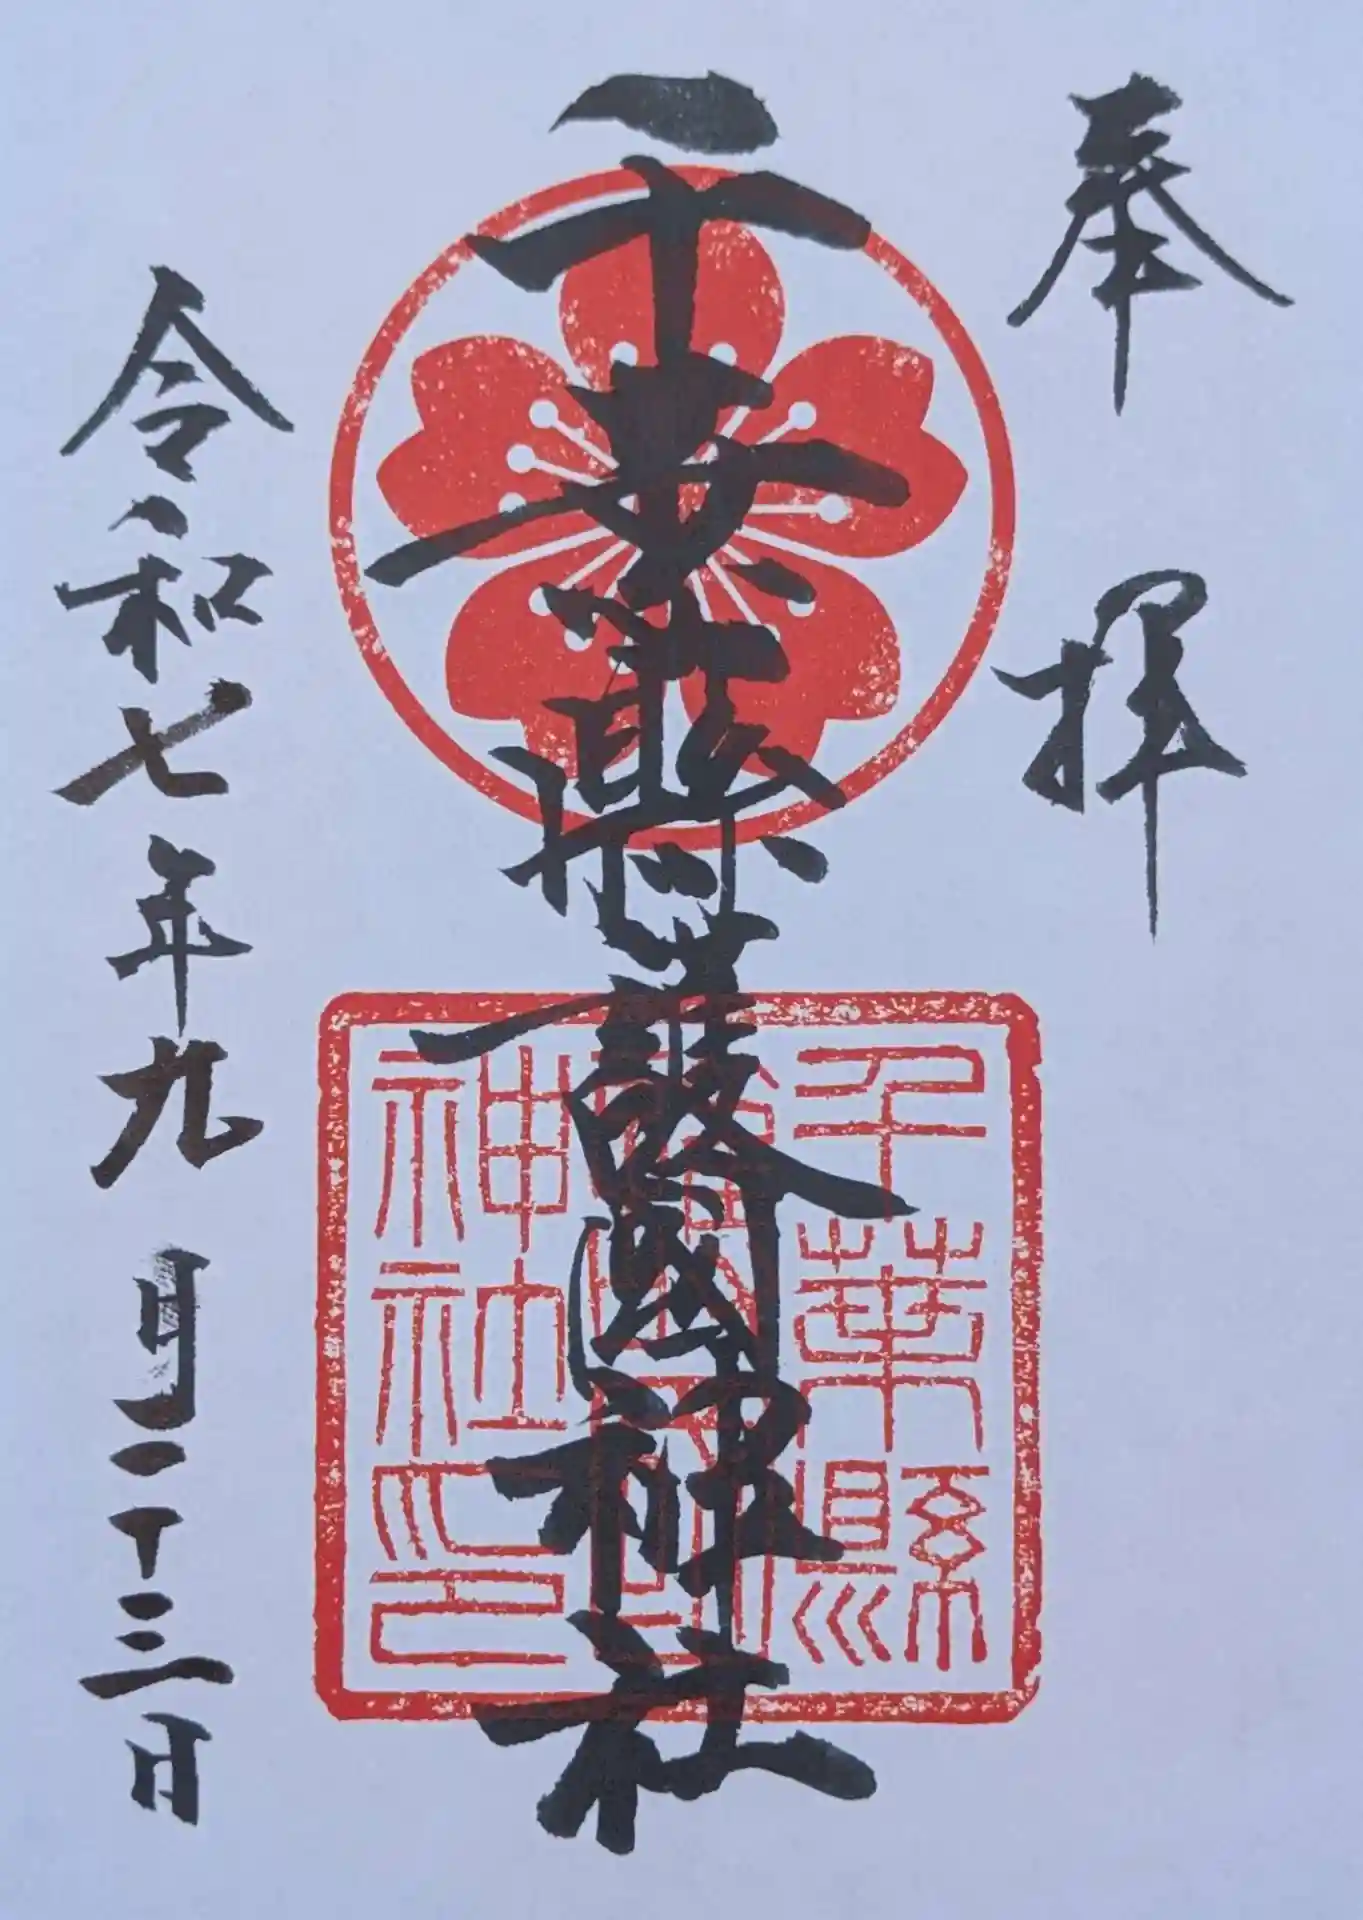 奉拝
千葉縣護國神社
千葉縣
護國
神社印
令和七年九月二十三日